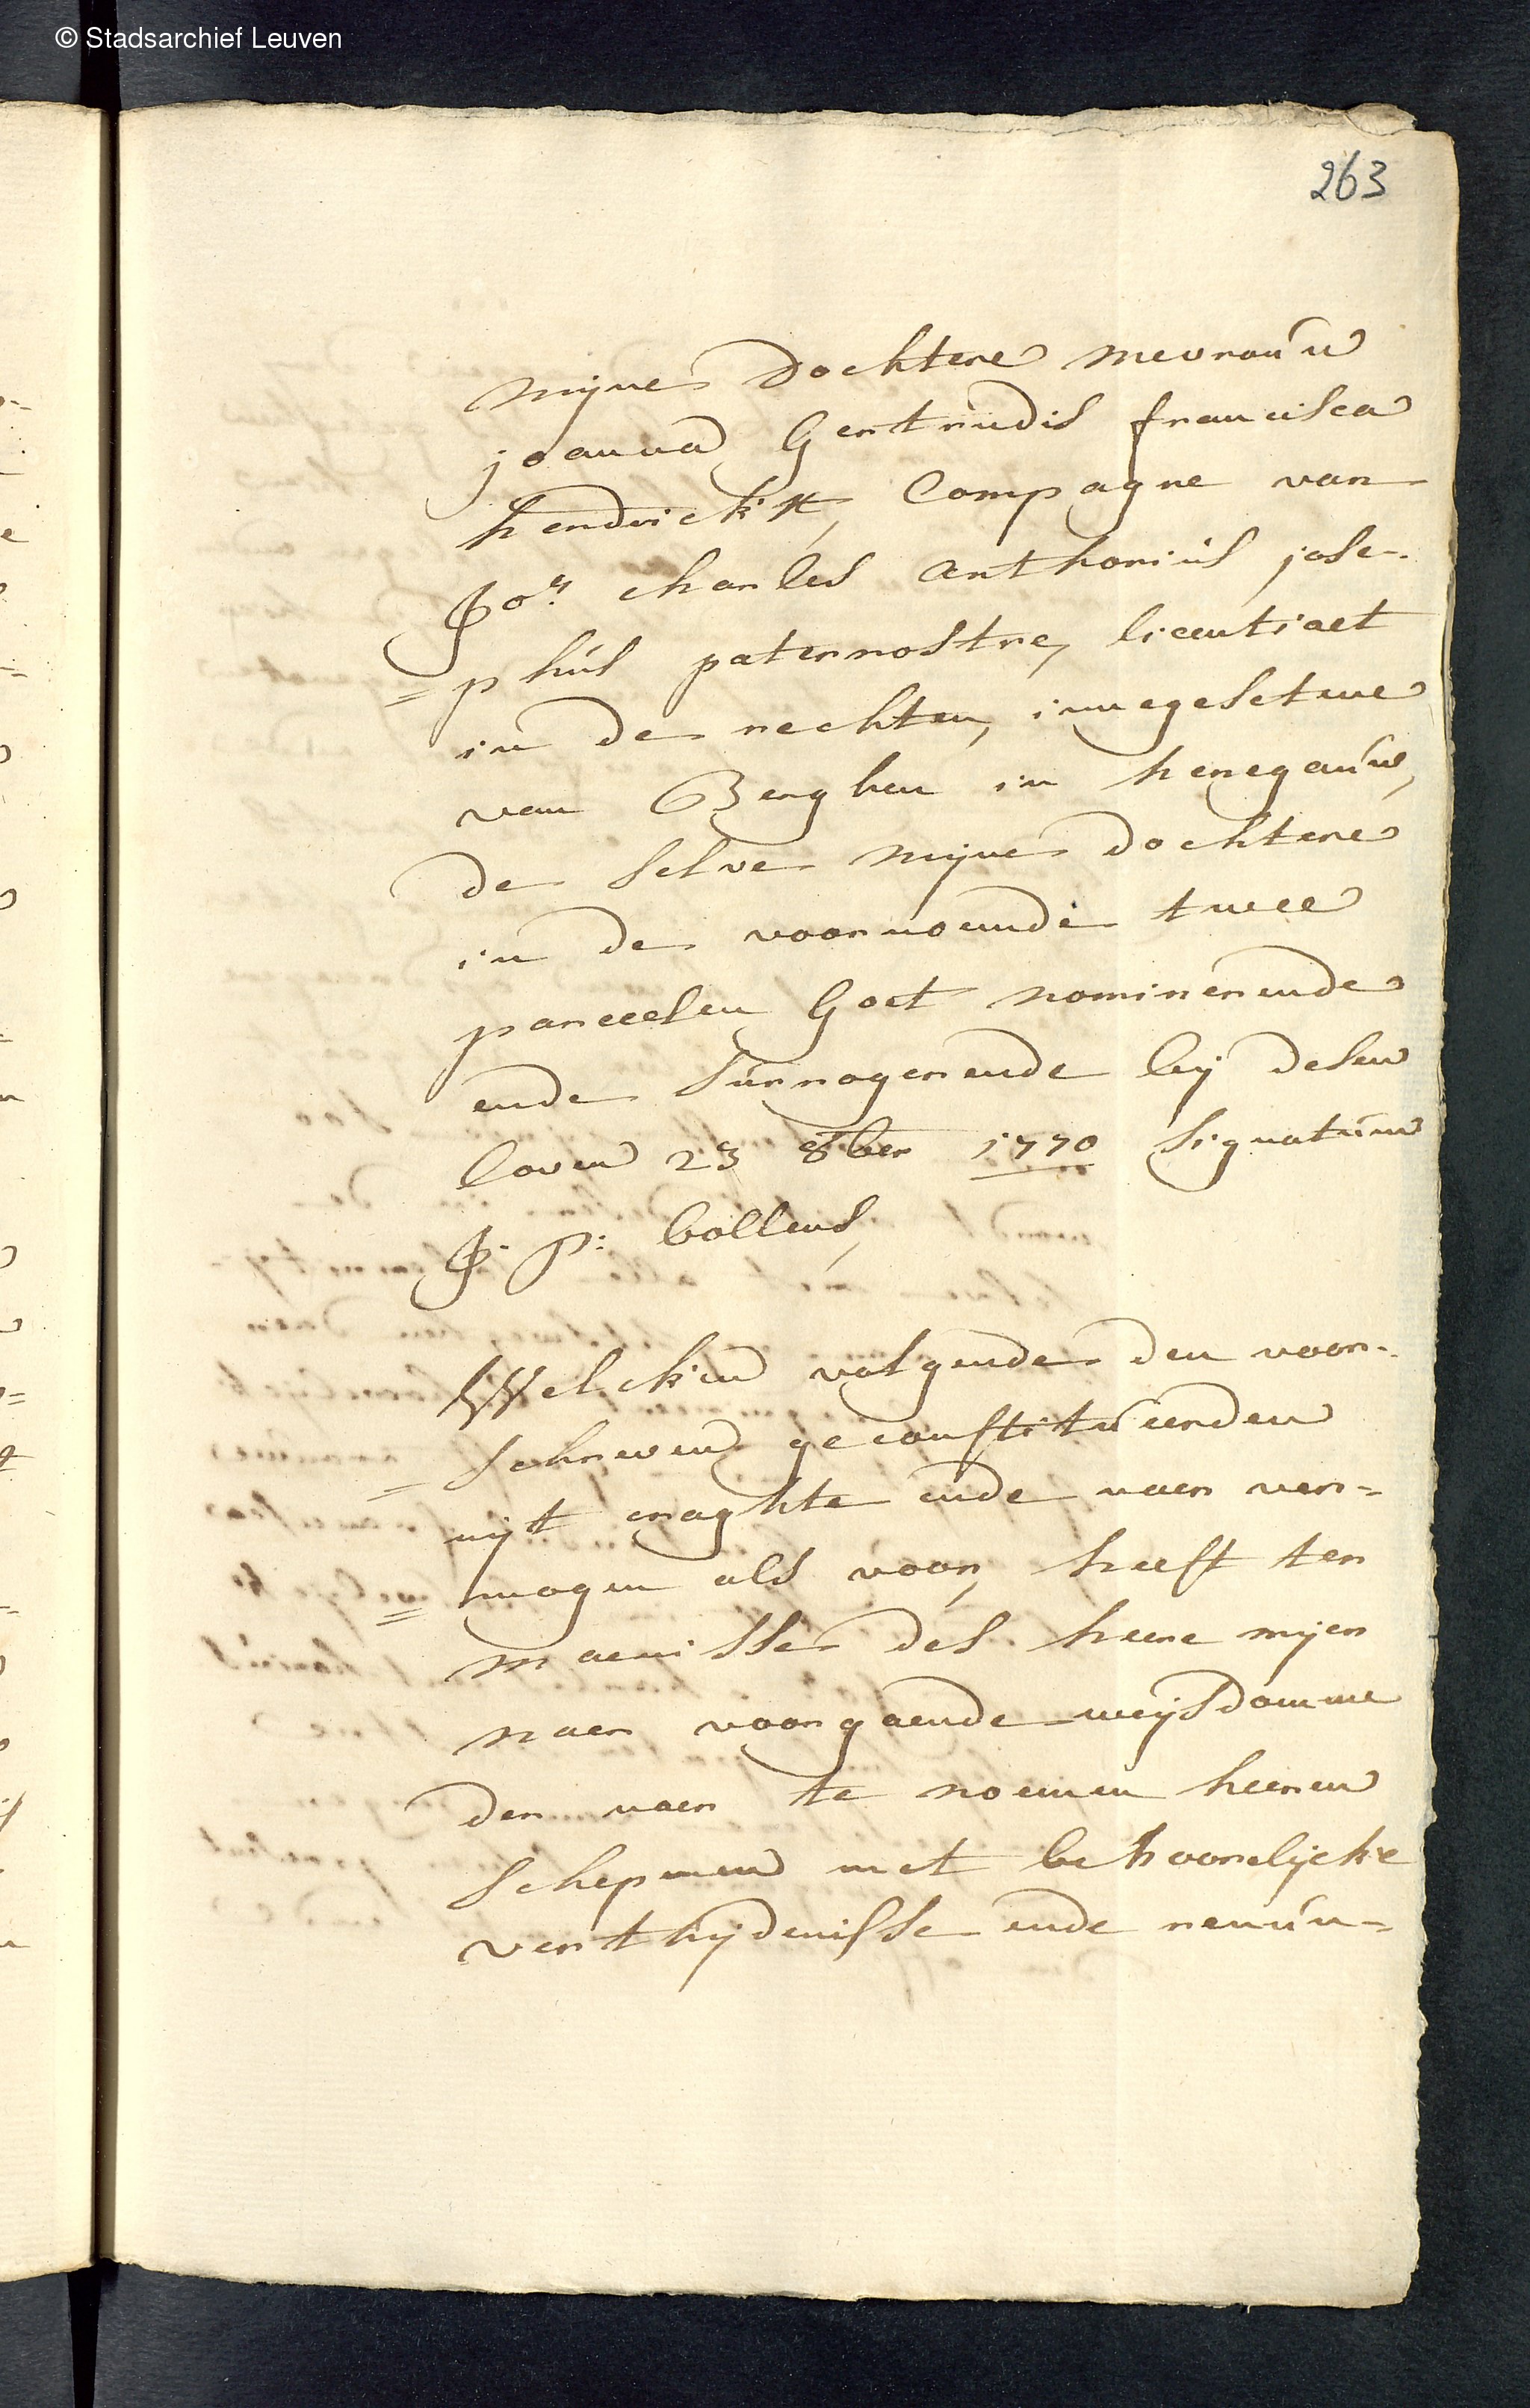 © Stadsarchief Leuven
263
mijne dochtere mevrouw
joanna Gertrudis francisca
hendrickx, Compagne van
Jor. charles anthonius jose-
=phus paternostre, licentiaet
in de rechten, innegesetene
van Berghen in henegauw,
de selve mijne dochtere
in de voornoemde twee
parceelen Goet nominerende
ende surrogerende bij desen
loven 23 8ber 1770 signatum
J. P: bollens,
Welcken volgende den voor-
=schreven geconstitueerden
uijt craghte ende naer ver=
=mogen als voor, heeft ter
maenisse des heere mijer
naer voorgaende weijsdomme
der naer te noemen heeren
schepenen met behoorelijcke
verthijdenisse ende renun=